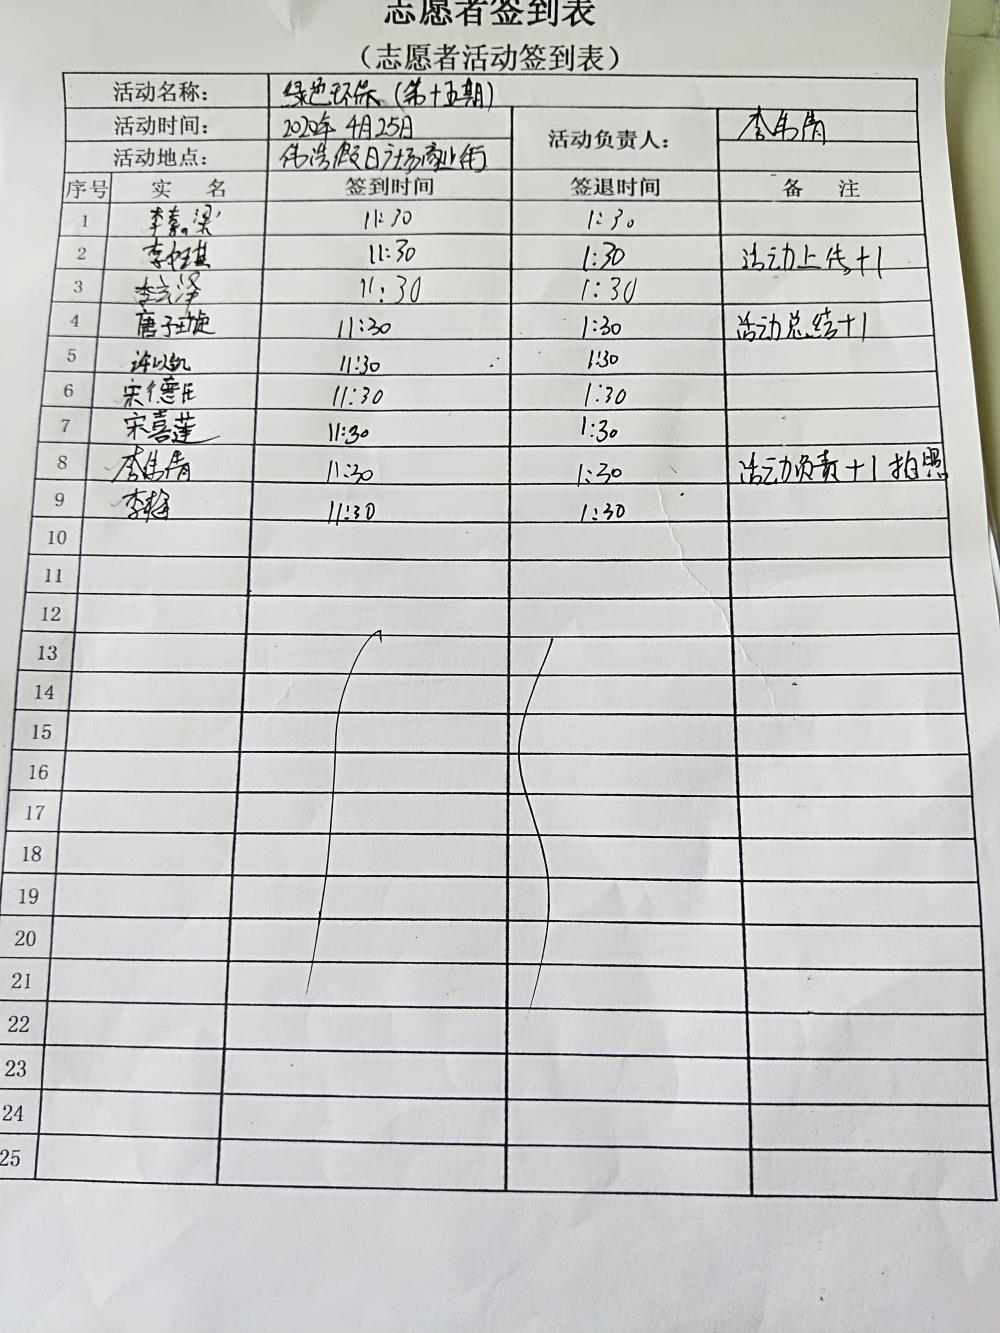 志愿者签到表
（志愿者活动签到表）
活动名称： 绿色环保（第十五期）
活动时间： 2020年4月25日 活动负责人： 李伟倩
活动地点： 伟浩假日广场商业街
序号 实 名 签到时间 签退时间 备 注
1 11:30 1:30
2 11:30 1:30 活动上传+1
3 李云泽 11:30 1:30
4 唐子璇 11:30 1:30 活动总结+1
5 许以凯 11:30 1:30
6 宋德庄 11:30 1:30
7 宋喜莲 11:30 1:30
8 李伟倩 11:30 1:30 活动负责+1 拍照
9 李梅 11:30 1:30
10
11
12
13
14
15
16
17
18
19
20
21
22
23
24
25